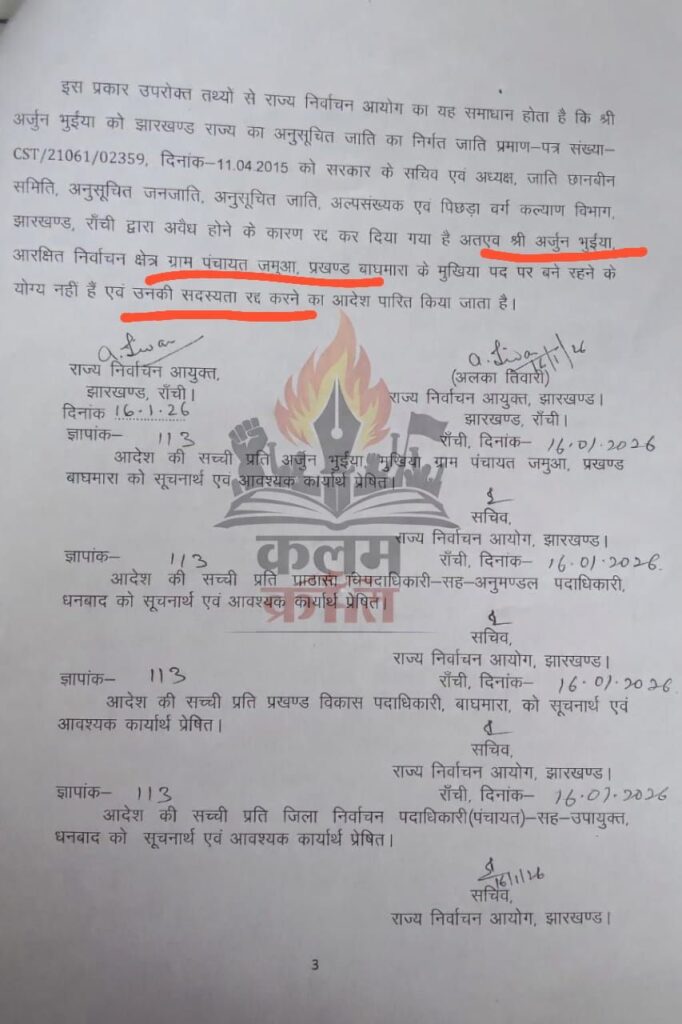 इस प्रकार उपरोक्त तथ्यो से राज्य निर्वाचन आयोग का यह समाधान होता है कि श्री
अर्जुन भुईया को झारखण्ड राज्य का अनुसूचित जाति का निर्गत जाति प्रमाण–पत्र संख्या–
CST/21061/02359, दिनांक–11.04.2015 को सरकार के सचिव एवं अध्यक्ष, जाति छानबीन
समिति, अनुसूचित जनजाति, अनुसूचित जाति, अल्पसंख्यक एवं पिछड़ा वर्ग कल्याण विभाग,
झारखण्ड, राँची द्वारा अवैध होने के कारण रद्द कर दिया गया है अतएव श्री अर्जुन भुईया,
आरक्षित निर्वाचन क्षेत्र ग्राम पंचायत जमुआ, प्रखण्ड बाघमारा के मुखिया पद पर बने रहने के
योग्य नहीं हैं एवं उनकी सदस्यता रद्द करने का आदेश पारित किया जाता है।
राज्य निर्वाचन आयुक्त,
झारखण्ड, राँची।
दिनांक 16.1.26
16/1/26
(अलका तिवारी)
राज्य निर्वाचन आयुक्त, झारखण्ड।
झारखण्ड, राँची।
ज्ञापांक– 113 राँची, दिनांक– 16.01.2026
आदेश की सच्ची प्रति अर्जुन भुईया, मुखिया ग्राम पंचायत जमुआ, प्रखण्ड
बाघमारा को सूचनार्थ एवं आवश्यक कार्यार्थ प्रेषित।
सचिव,
राज्य निर्वाचन आयोग, झारखण्ड।
ज्ञापांक– 113 राँची, दिनांक– 16.01.2026
आदेश की सच्ची प्रति –सह–अनुमण्डल पदाधिकारी,
धनबाद को सूचनार्थ एवं आवश्यक कार्यार्थ प्रेषित।
कलम
क्रांति
सचिव,
राज्य निर्वाचन आयोग, झारखण्ड।
ज्ञापांक– 113 राँची, दिनांक– 16.01.2026
आदेश की सच्ची प्रति प्रखण्ड विकास पदाधिकारी, बाघमारा, को सूचनार्थ एवं
आवश्यक कार्यार्थ प्रेषित।
सचिव,
राज्य निर्वाचन आयोग, झारखण्ड।
ज्ञापांक– 113 राँची, दिनांक– 16.01.2026
आदेश की सच्ची प्रति जिला निर्वाचन पदाधिकारी(पंचायत)–सह–उपायुक्त,
धनबाद को सूचनार्थ एवं आवश्यक कार्यार्थ प्रेषित।
16/1/26
सचिव,
राज्य निर्वाचन आयोग, झारखण्ड।
3